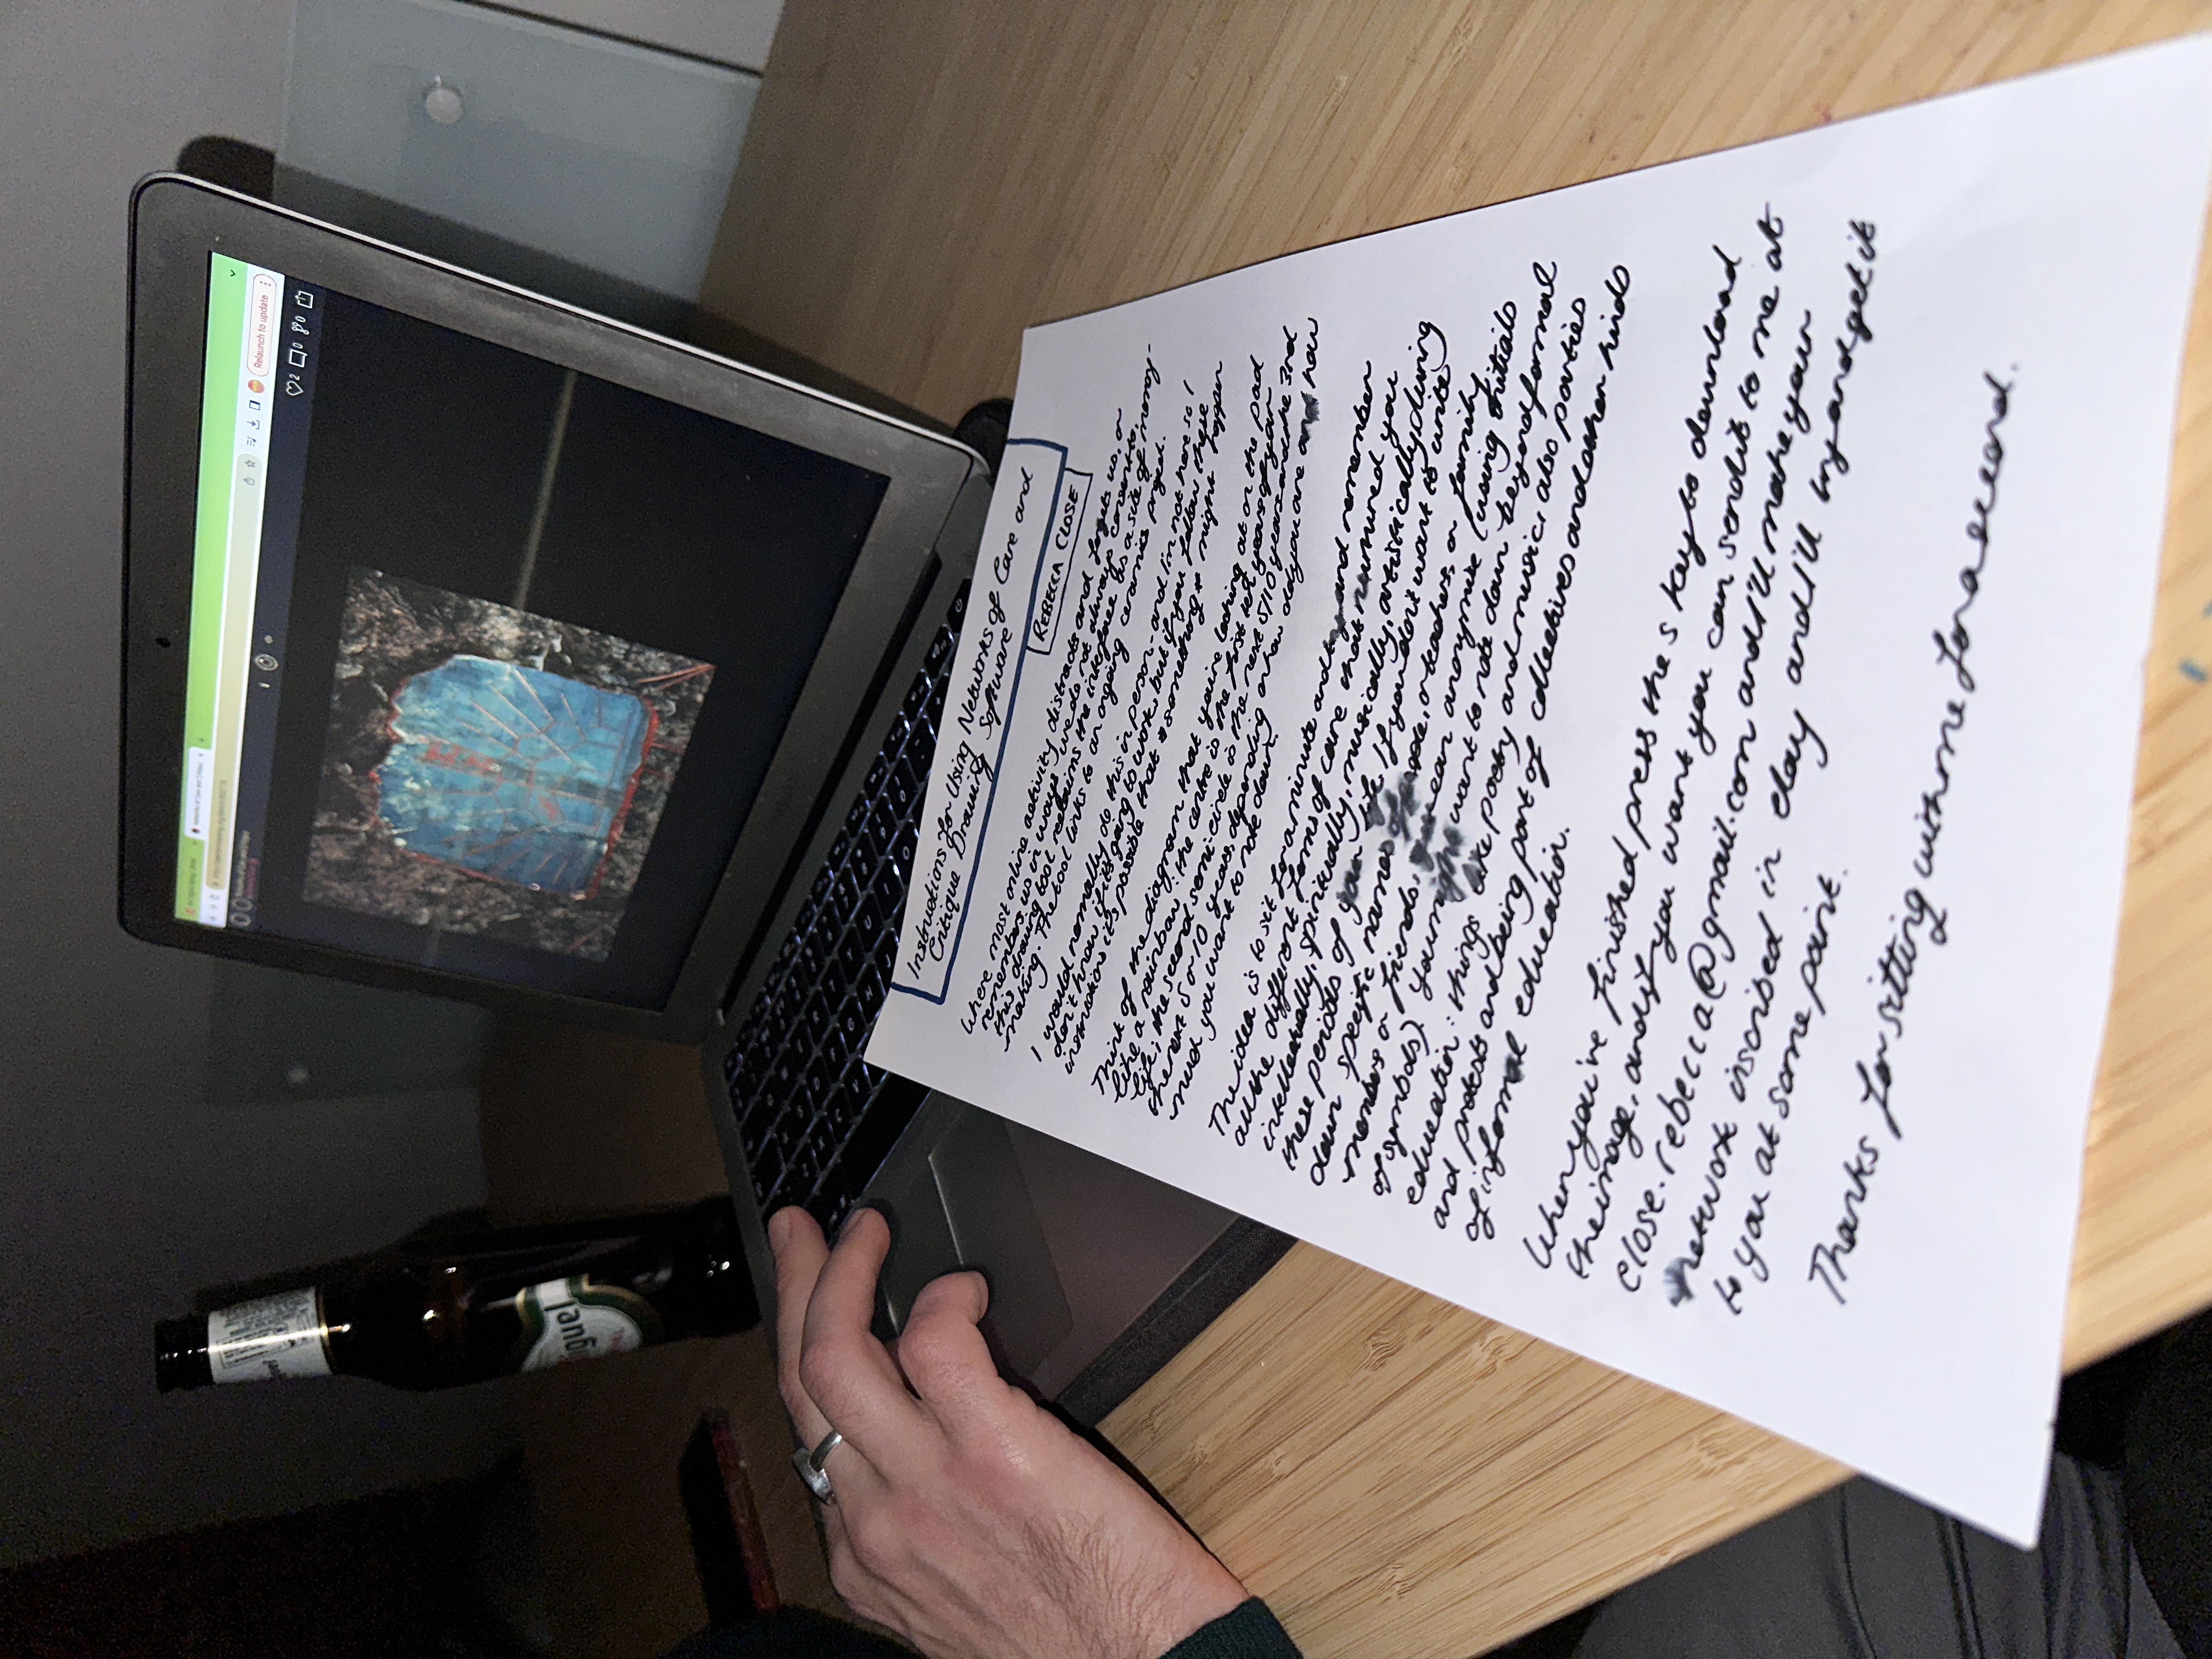 iguel
Networks of Care and Critique
Relaunch to update
2
0
0
Instructions for Using Networks of Care and
Critique Drawing Software
REBECCA CLOSE
Where most online activity distracts and forgets us, or
remembers us in ways we do not always consent to,
this drawing tool reclaims the interface as a site of memory-
making. The tool links to an ongoing ceramics project.
I would normally do this in person - and I'm not here so I
don't know if it's going to work, but if you follow these
instructions it's possible that *something* might happen
Think of the diagram that you're looking at on the pad
like a rainbow: the centre is the first ten years of your
life; the second semi-circle is the next 5/10 years and the 3rd
the next 5 or 10 years, depending on how old you are and how
much you want to note down.
The idea is to sit for a minute and try and remember
all the different forms of care that nurtured you
intellectually, spiritually, musically, artistically during
these periods of your life. If you don't want to write
down specific names of people, or teachers, or family
members or friends, you can anonymise (using initials
of symbols). You might want to note down beyond formal
education: things like poetry and music, also parties
and protests and being part of collectives and other kinds
of informal education.
When you've finished press the s key to download
the image, and if you want you can send it to me at
close.rebecca@gmail.com and I'll make your
network inscribed in clay and I'll try and get it
to you at some point.
Thanks for sitting with me for a second.